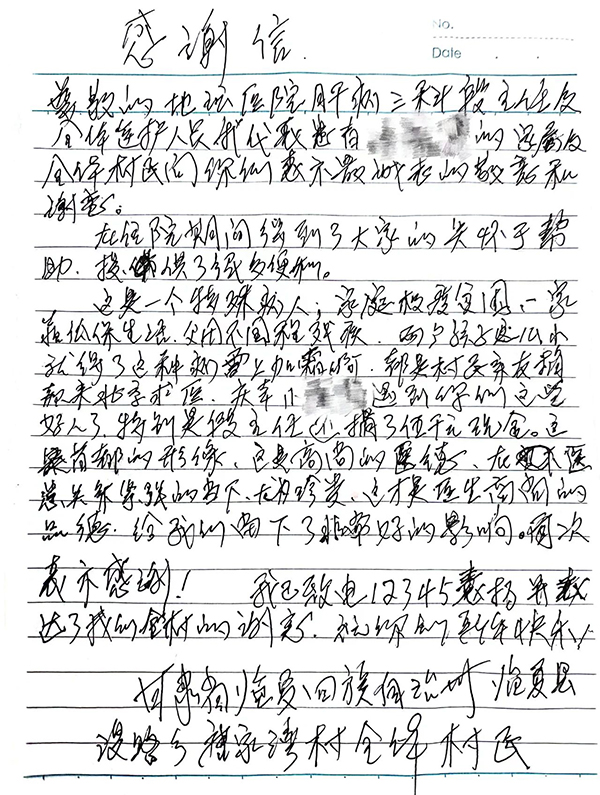 No.
Date
感谢信
尊敬的地坛医院肝病三科段主任及
全体医护人员我代表患者 的远亲及
全体村民向你们表示最诚挚的敬意和
谢意。
在住院期间得到了大家的关怀于帮
助、提供了很多便利。
这是一个特殊病人;家庭极度贫困、一家
靠低保生活、父母不同程残疾、两个孩子
就得了这种病雪上加霜啊、都是村民亲友捐
款来北京求医、庆幸 遇到你们这些
好人了特别是段主任还捐了伍千元现金。这
是首都的形像、这是高尚的医德、在 医
患关系紧张的当下、尤为珍贵、这才是医生高尚的
品德、给我们留下了非常好的影响。再次
表示感谢! 我已致电12345表扬并表
达了我们全村的谢意、祝你们新年快乐!
甘肃省临夏回族自治州临夏县
漫路乡 家湾村全体村民